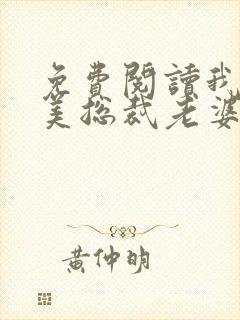 免費閱讀我
美總裁老婆
黃仲明